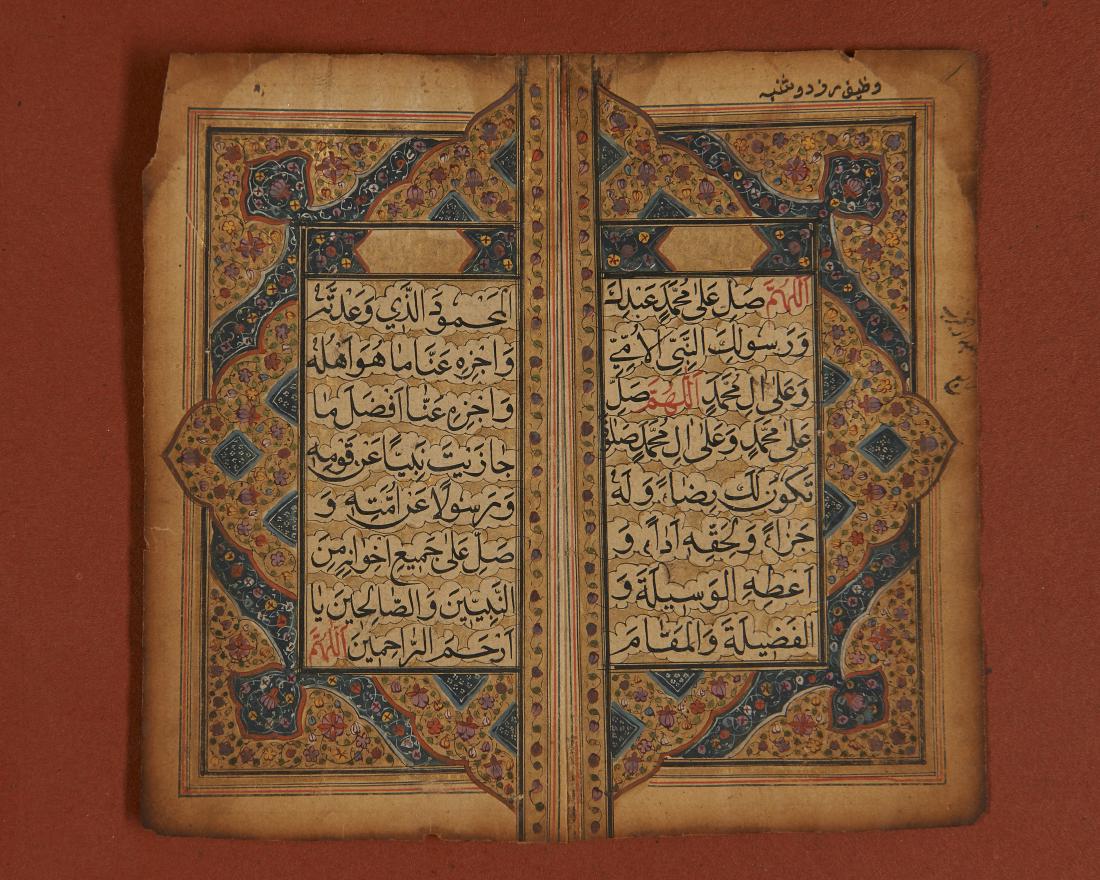 وظیفه روز دوشنبه
اَللّٰهُمَّ صَلِّ عَلٰى مُحَمَّدٍ عَبْدِكَ
وَرَسُولِكَ النَّبِيِّ الْاُمِّيِّ
وَعَلٰى اٰلِ مُحَمَّدٍ اَللّٰهُمَّ صَلِّ
عَلٰى مُحَمَّدٍ وَعَلٰى اٰلِ مُحَمَّدٍ صَلٰوةً
تَكُونُ لَكَ رِضَاءً وَلَهُ
جَزَاءً وَلِحَقِّهِ اَدَاءً وَ
اَعْطِهِ الْوَسِيلَةَ وَ
الْفَضِيلَةَ وَالْمَقَامَ
الْمَحْمُودَ الَّذِي وَعَدْتَهُ
وَاجْزِهِ عَنَّا مَا هُوَ اَهْلُهُ
وَاجْزِهِ عَنَّا اَفْضَلَ مَا
جَازَيْتَ نَبِيًّا عَنْ قَوْمِهِ
وَرَسُولًا عَنْ اُمَّتِهِ وَ
صَلِّ عَلٰى جَمِيعِ اِخْوَانِهِ مِنَ
النَّبِيِّينَ وَالصَّالِحِينَ يَا
اَرْحَمَ الرَّاحِمِينَ اَللّٰهُمَّ